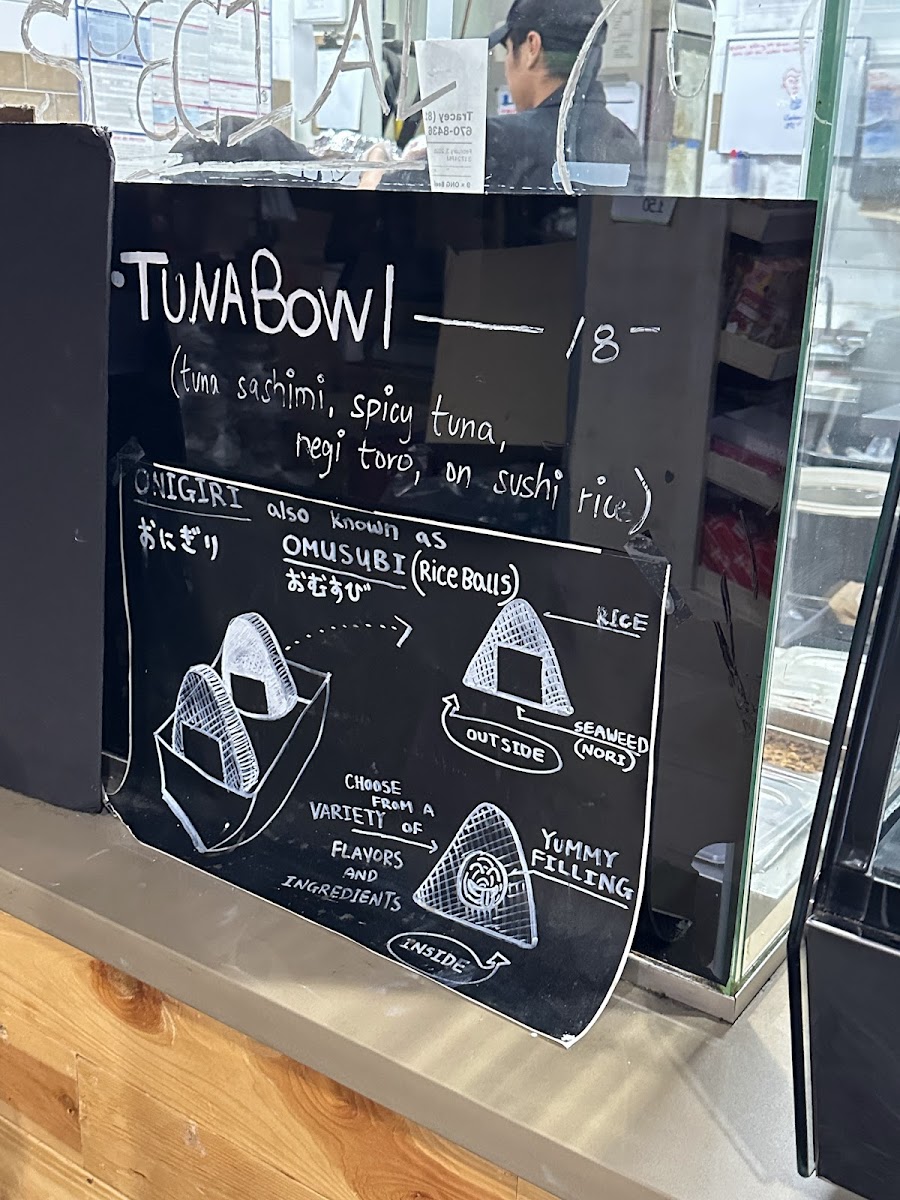 SPECIAL
Tracey (8
670-8436
•TUNA BOWl — 18-
(tuna sashimi, spicy tuna,
negi toro, on sushi rice)
ONIGIRI also known as
おにぎり
OMUSUBI (Rice Balls)
おむすび
RICE
SEAWEED
(NORI)
OUTSIDE
CHOOSE
FROM A
VARIETY OF
FLAVORS
AND
INGREDIENTS
YUMMY
FILLING
INSIDE